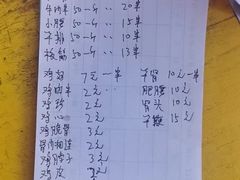 牛肉串 50一斤 .. 20串
小腰 50一斤 .. 15串
牛排 50一斤 .. 10串
板筋 50一斤 .. 13串
鸡翅 7元一串
鸡肉串 2元
鸡珍 2元
鸡心 2元
鸡脆骨 3元
骨肉相连 2元
鸡脖子 3元
鸡皮 2元
羊宝 10元一串
肥腰 10元
骨头 10元
羊鞭 15元